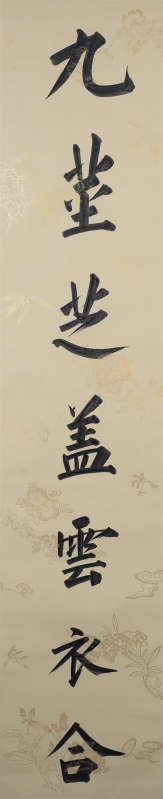 九莖芝盖雲衣合